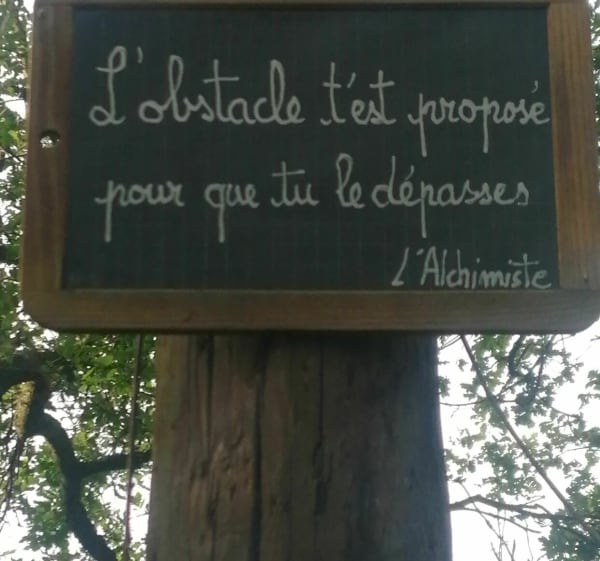 L'obstacle t'est proposé
pour que tu le dépasses
L'Alchimiste